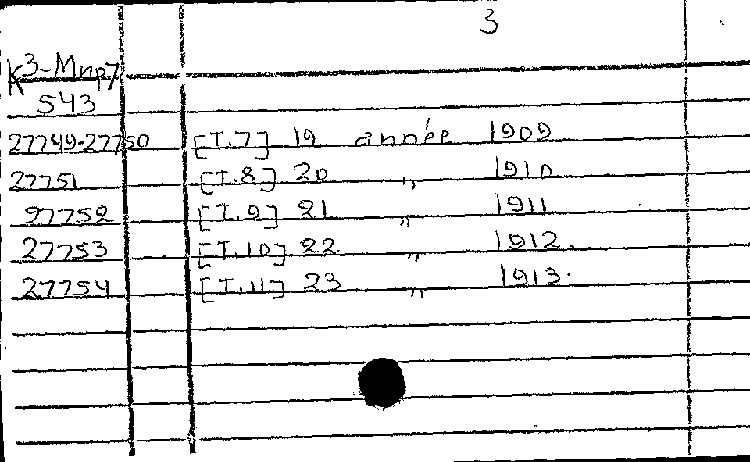 3
K3-Mnp7
543
27749-27750 [T.7] 19 année 1909
27751 [T.8] 20 " 1910
27752 [T.9] 21 " 1911
27753 [T.10] 22 " 1912.
27754 [T.11] 23 " 1913.